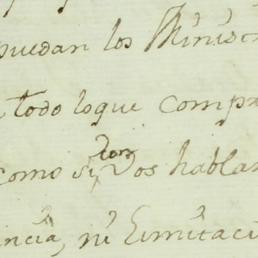 puedan los Minis
todo loque comp
con
como si Vos habla
ncia, ni Limitaci